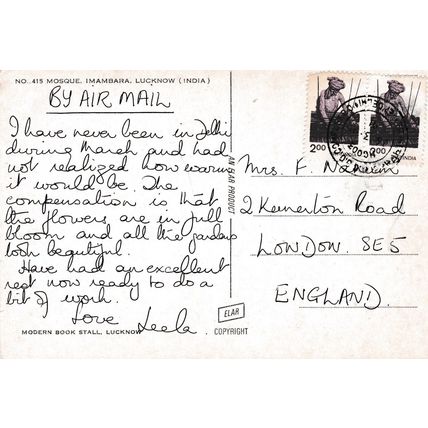 NO. 415 MOSQUE, IMAMBARA, LUCKNOW (INDIA)
BY AIR MAIL
I have never been in Delhi
during March and had
not realized how warm
it would be. The
compensation is that
the flowers are in full
bloom and all the gardens
look beautiful.
Have had an excellent
rest now ready to do a
bit of work.
Love Leela.
MODERN BOOK STALL, LUCKNOW
AN ELAR PRODUCT
ELAR
COPYRIGHT
2.00
2.00
INDIA
Mrs. F.
2 Kemerton Road
LONDON SE5
ENGLAND.